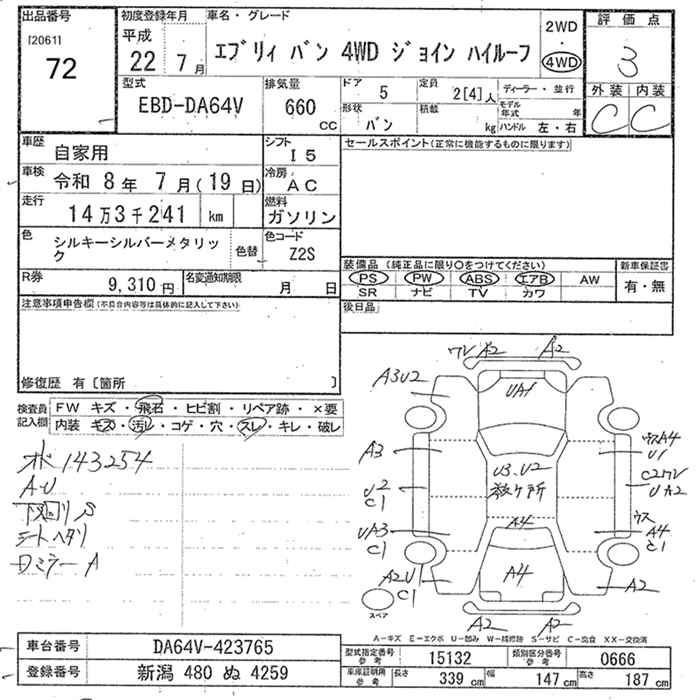 出品番号
[2061]
72
初度登録年月
平成
22年 7月
車名・グレード
エブリィ バン 4WD ジョイン ハイルーフ
2WD
・
4WD
評価点
3
外装 内装
C C
型式
EBD-DA64V
排気量
660 CC
ドア
5
定員
2[4]人
ディーラー・並行
形状
バン
積載
kg
モデル年式 年
ハンドル 左・右
車歴
自家用
シフト
I5
車検
令和 8年 7月(19日)
冷房
AC
走行
14万3千241 km
燃料
ガソリン
色
シルキーシルバーメタリック
色替
色コード
Z2S
R券
9,310円
名変通知期限
月 日
セールスポイント(正常に機能するものに限ります)
装備品 (純正品に限り○をつけてください)
PS PW ABS エアB AW
SR ナビ TV カワ
新車保証書
有・無
後日品
注意事項申告欄(不具合内容等は具体的に記入して下さい)
修復歴 有〔箇所 〕
検査員記入欄
FW キズ・飛石・ヒビ割・リペア跡・×要
内装 キズ・汚レ・コゲ・穴・スレ・キレ・破レ
オド143254
AU
下回りS
シートヘタリ
Dミラー A
ワレ A2 A2
A3U2 UA1
A3
U2
C1
UA3
C1
A2U
C1
U3.U2
数ヶ所
A4
A4
ウスA4
U1
C2ワレ
UA2
ウス
A4
C1
A2
A2 A2
スペア
A-キズ E-エクボ U-凹み W-補修跡 S-サビ C-腐食 XX-交換済
車台番号
DA64V-423765
登録番号
新潟 480 ぬ 4259
型式指定番号 参考
15132
類別区分番号 参考
0666
車庫証明用 参考
長さ 339 cm 幅 147 cm 高さ 187 cm